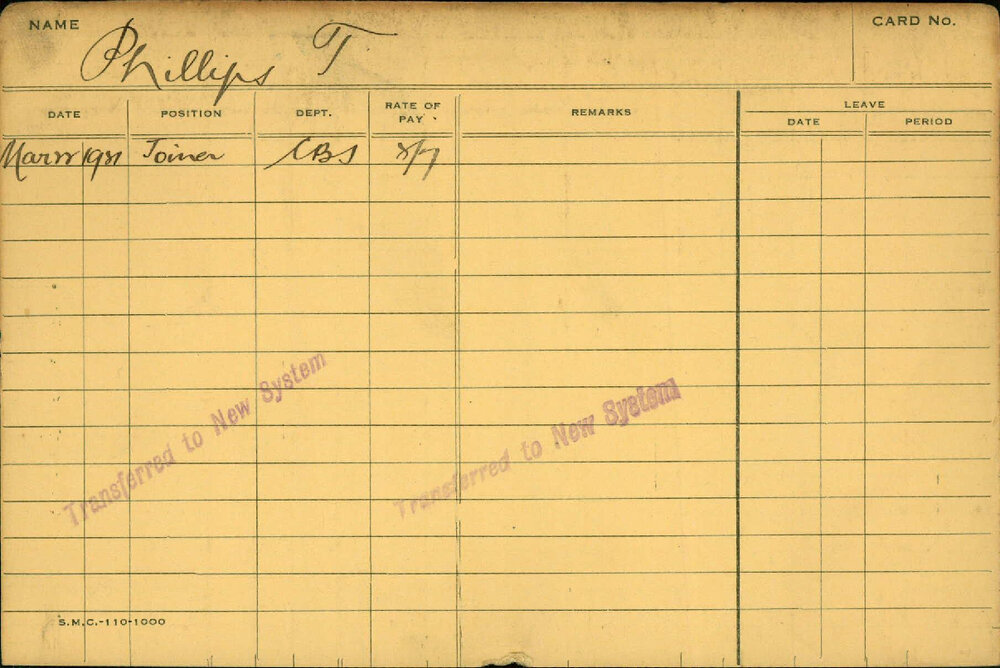 NAME
Phillips T
CARD No.
DATE
POSITION
DEPT.
RATE OF PAY
REMARKS
LEAVE
DATE
PERIOD
Mar 22 1921 Joiner CBS
Transferred to New System
Transferred to New System
S.M.C.-110-1000